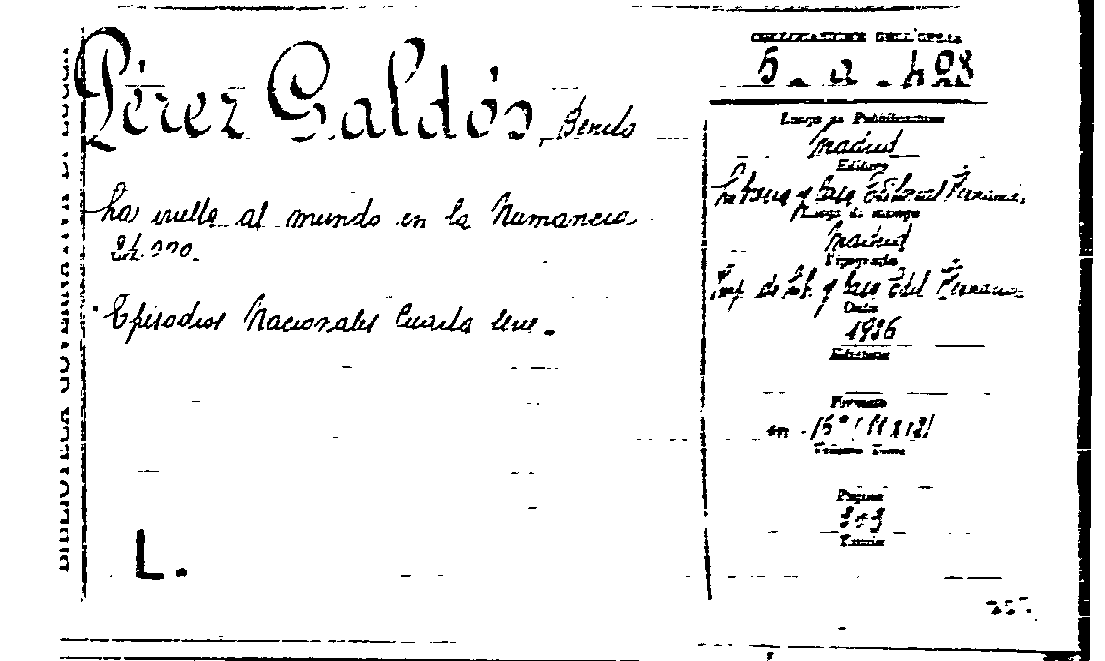 BIBLIOTECA GOVERNATIVA DI LUCCA
Pérez Galdós, Benito
La vuelta al mundo en la Numancia
24.000.
Episodios Nacionales Cuarta serie.
L.
COLLOCAZIONE DELL'OPERA
5 - a - 498
Luogo di Pubblicazione
Madrid
Editore
y Casa Editorial Hernando.
Luogo di stampa
Madrid
Tipografia
Imp. de y Casa Edit Hernando
Data
1926
Edizione
Formato
in - 16° (11 x 18)
Volume Tomo
Pagine